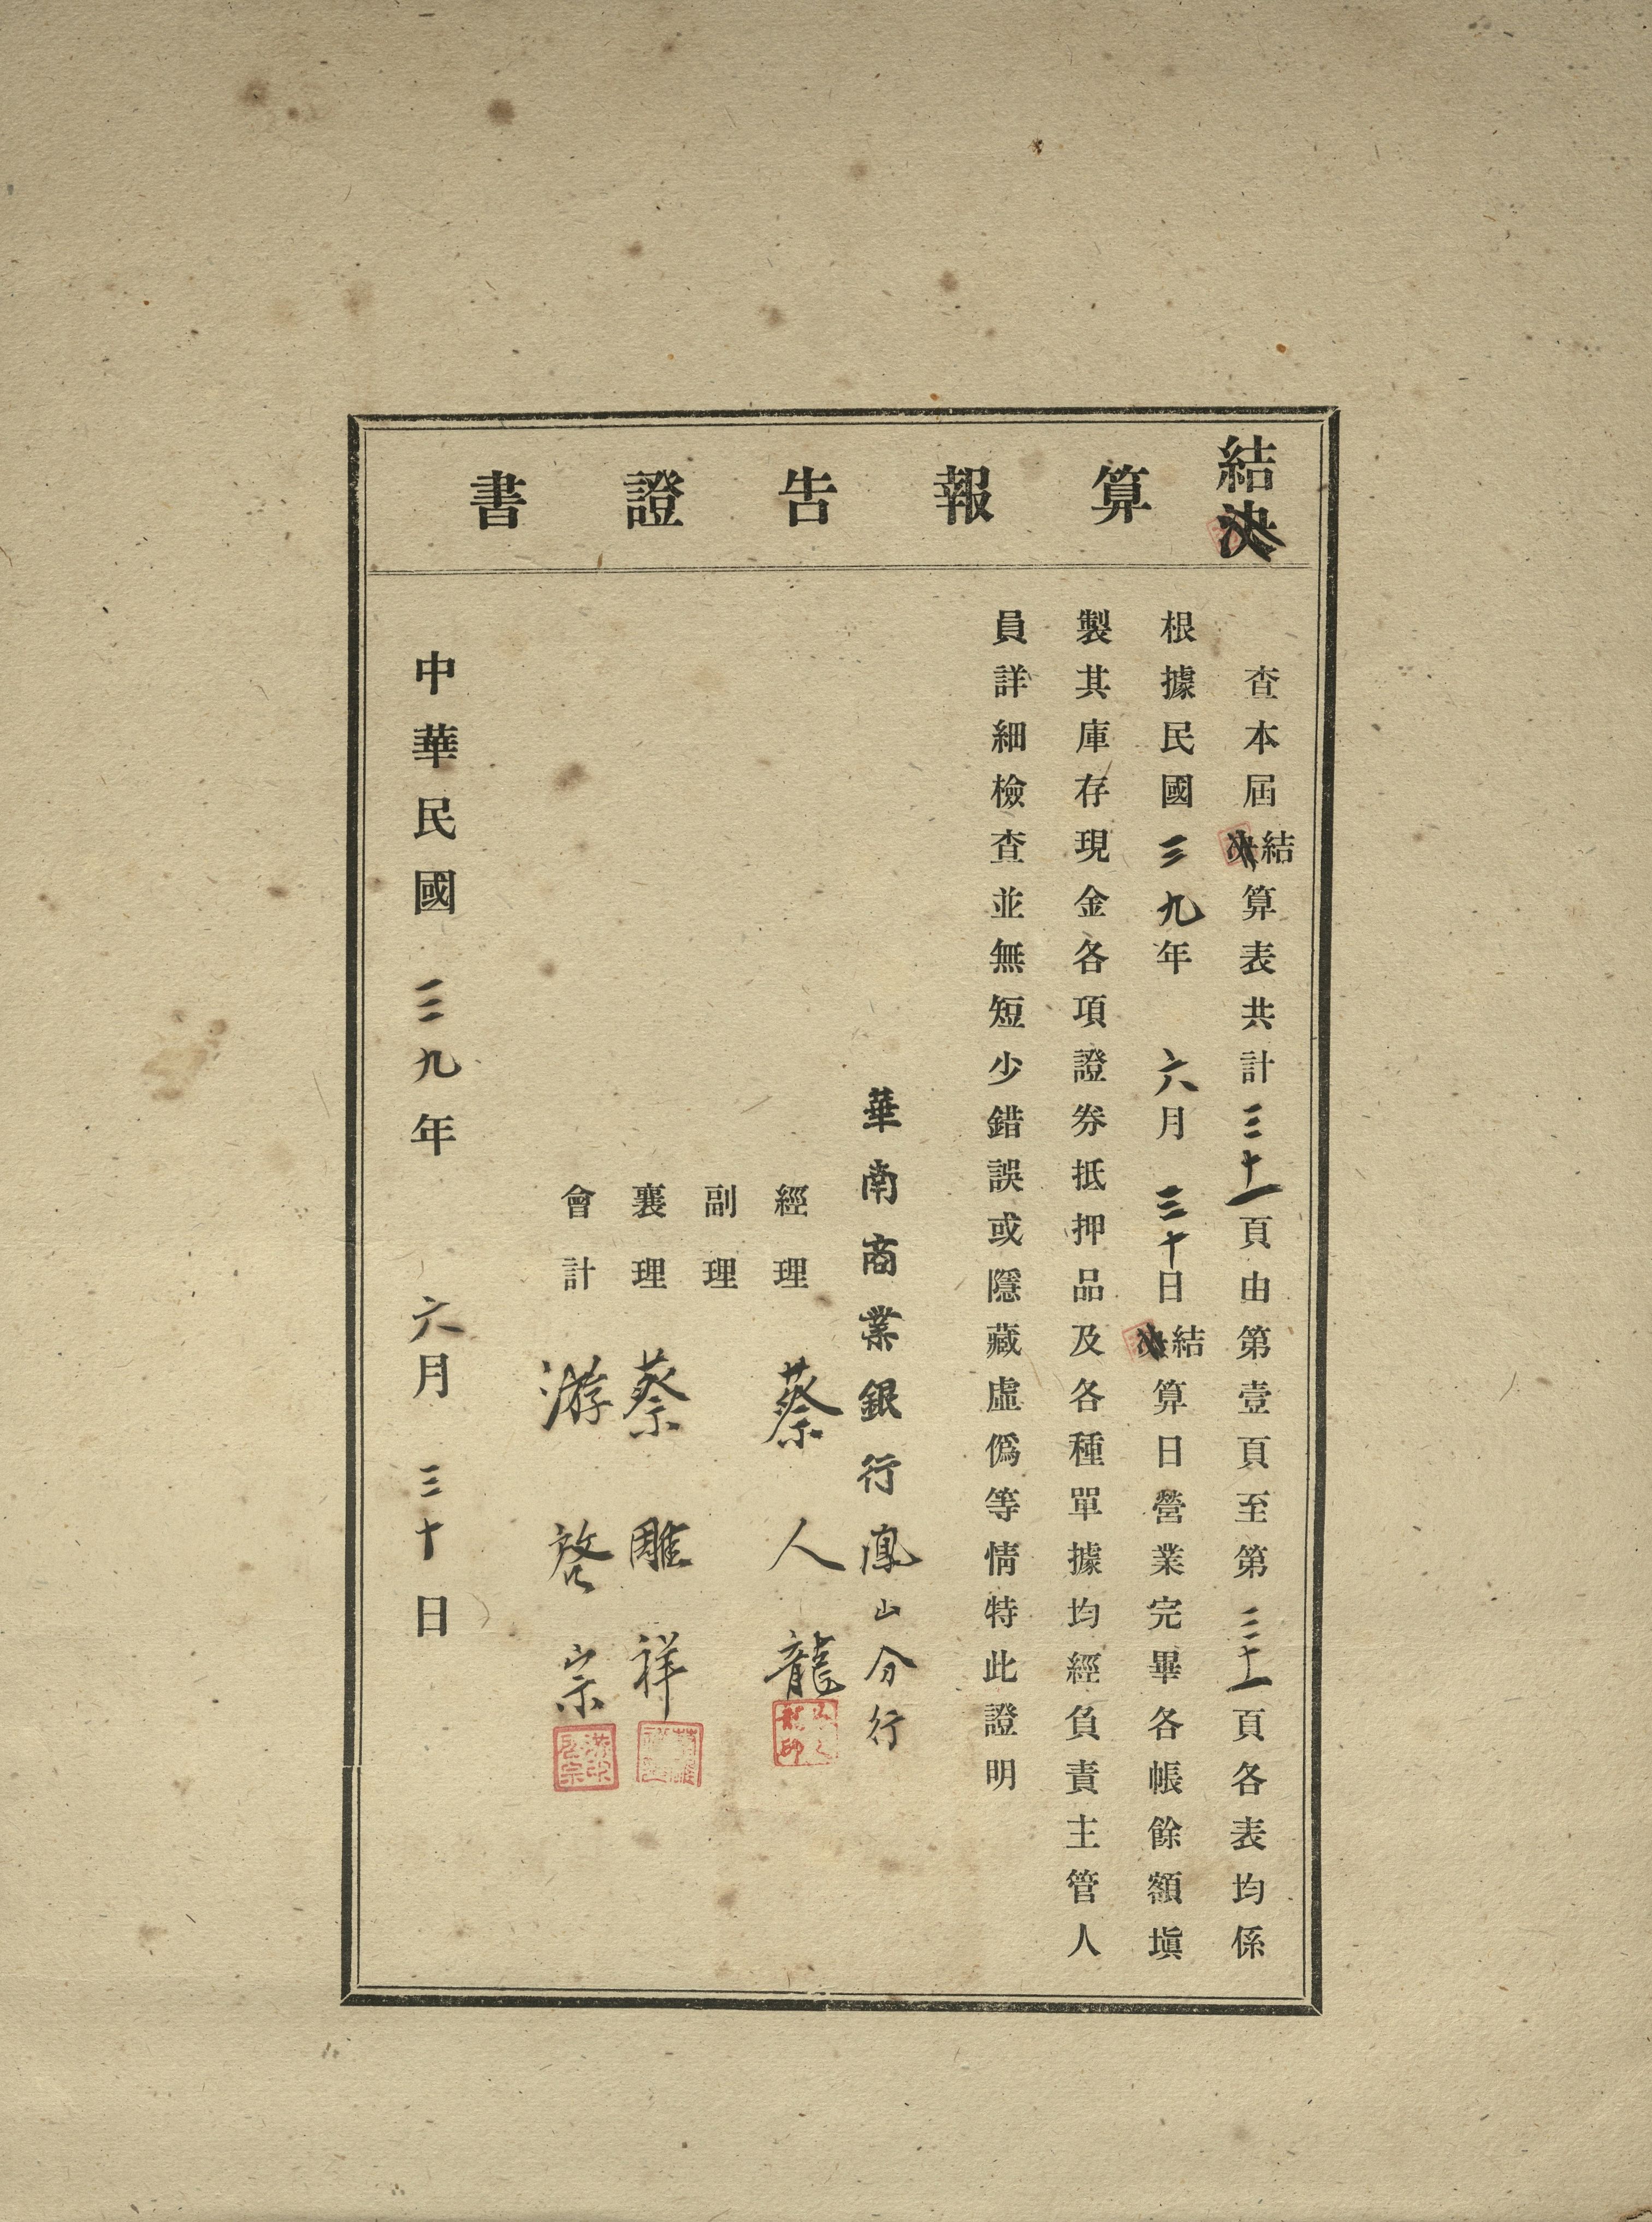 結算報告證書
查本屆結算表共計三十一頁由第壹頁至第三十一頁各表均係
根據民國三九年六月三十日結算日營業完畢各帳餘額塡
製其庫存現金各項證券抵押品及各種單據均經負責主管人
員詳細檢查並無短少錯誤或隱藏虛僞等情特此證明
華南商業銀行鳳山分行
經理 蔡人龍
副理
襄理 蔡雕祥
會計 游啓宗
中華民國三九年六月三十日